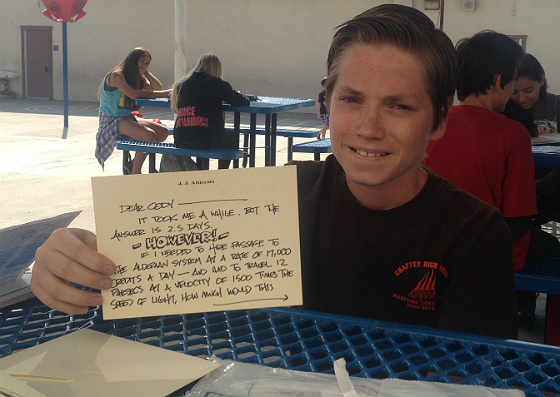 J. J. ABRAMS
DEAR CODY
IT TOOK ME A WHILE, BUT THE
ANSWER IS 2.5 DAYS.
- HOWEVER! -
IF I NEEDED TO HIRE PASSAGE TO
THE ALDERAAN SYSTEM AT A RATE OF 17,000
CREDITS A DAY — AND HAD TO TRAVEL 12
PARSECS AT A VELOCITY OF 1500 TIMES THE
SPEED OF LIGHT, HOW MUCH WOULD THIS
CHAFFEY HIGH
MARCHING